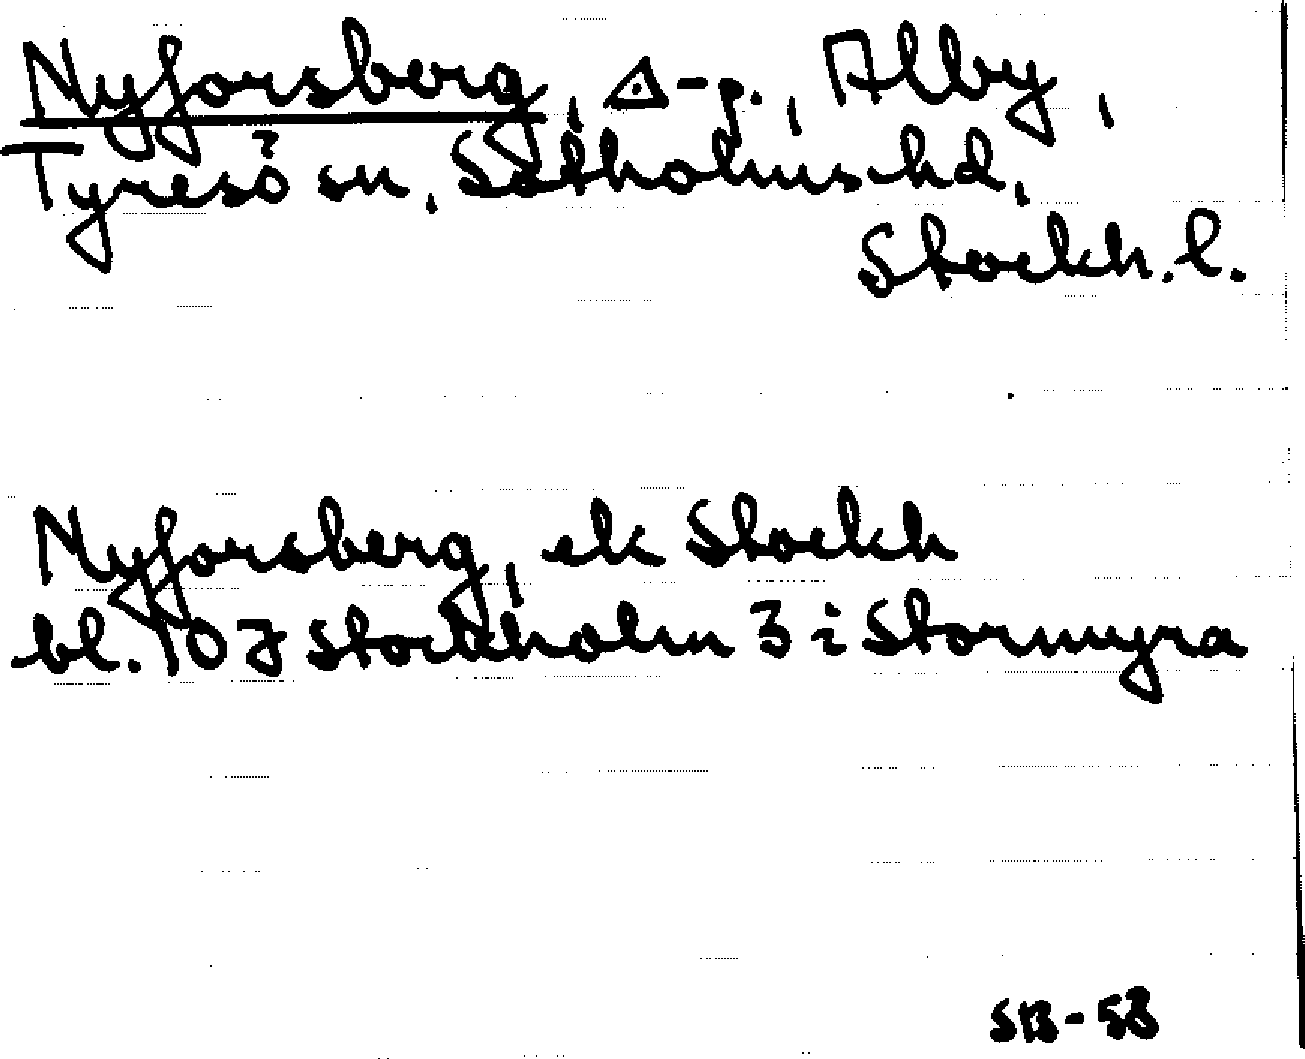 Nyforsberg, ⊿-p., Alby,
Tyresö sn, Sotholms hd,
Stockh. l.
Nyforsberg, ek Stockh
bl. 10 J Stockholm 3 i Stormyra
SB-58